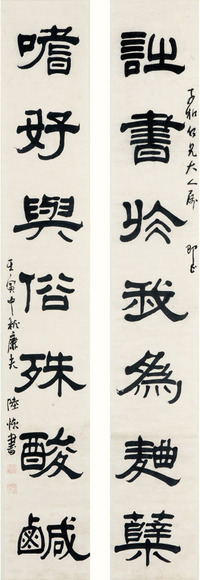 子和仁兄大人屬 即正
詩書於我為麴蘖
嗜好與俗殊酸鹹
壬寅中秋廉夫陸恢書